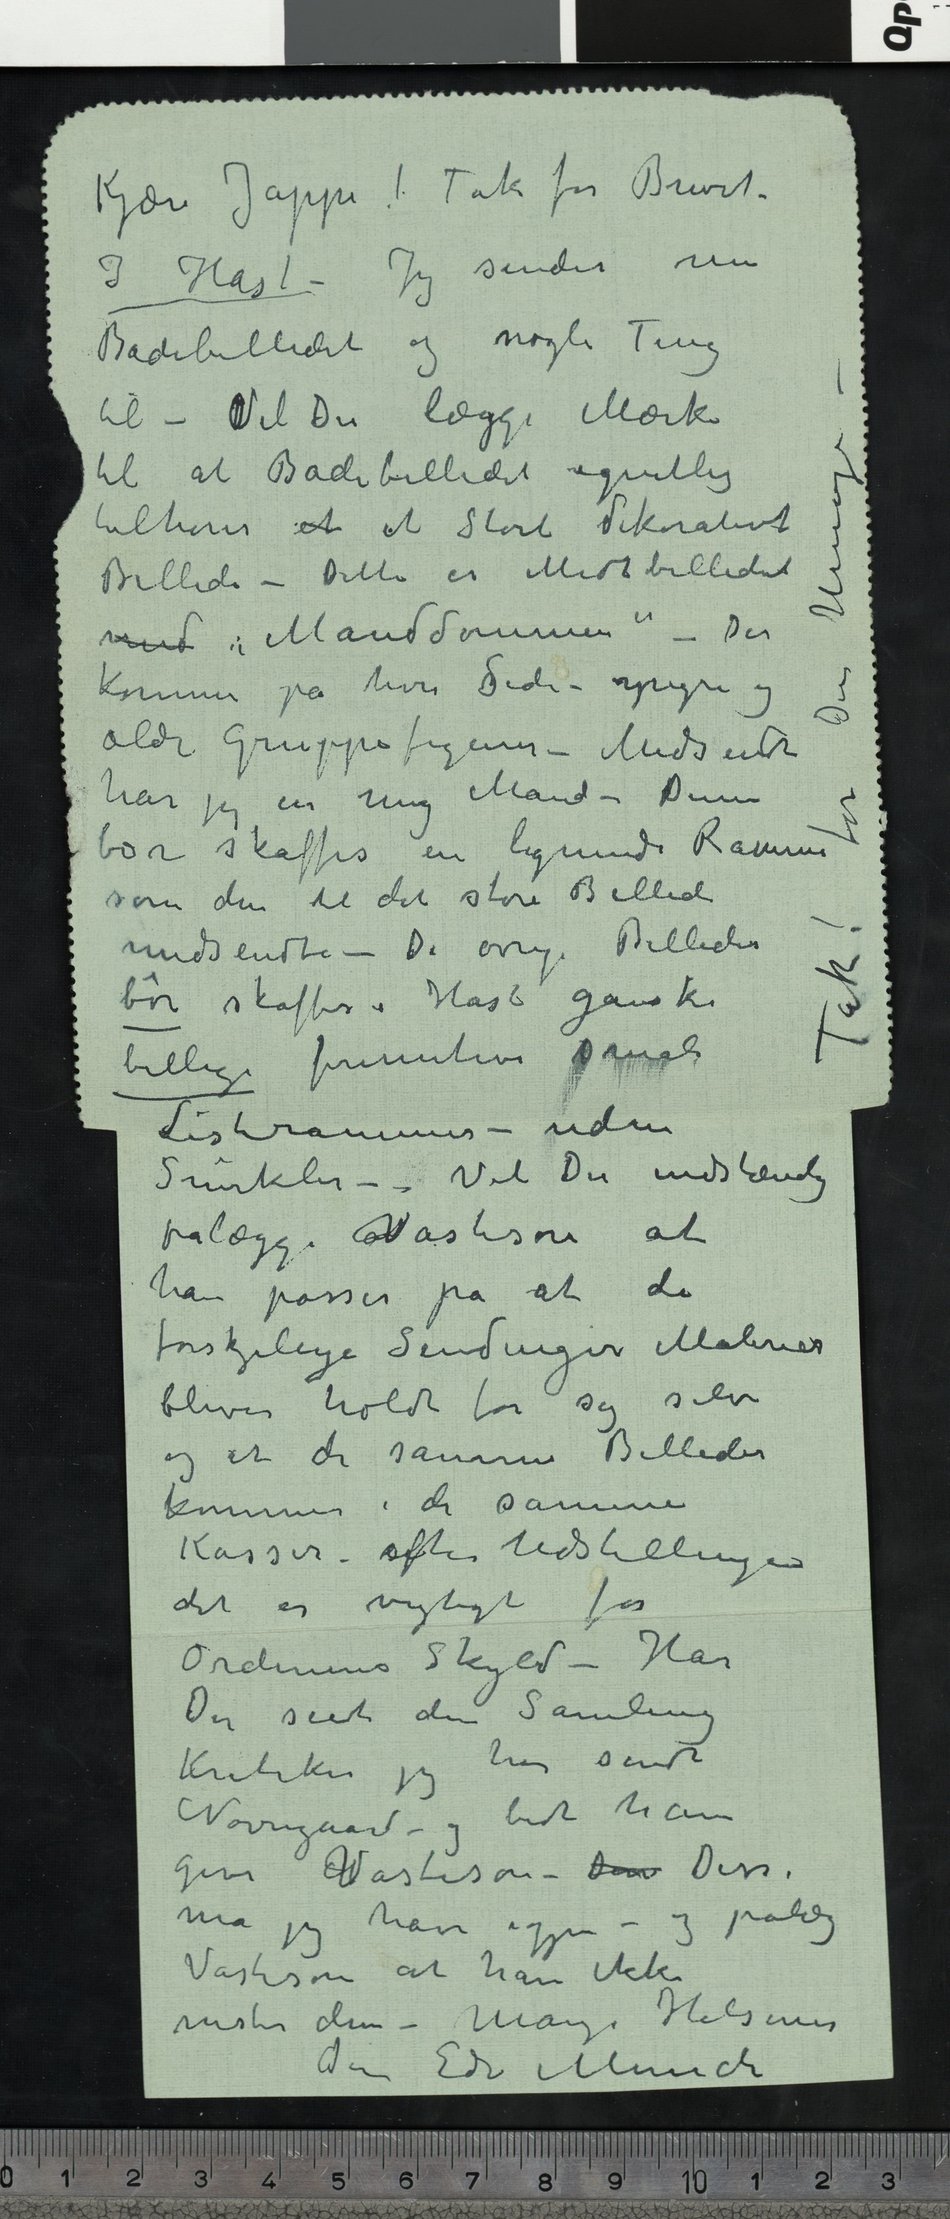 Kjære Jappe! Tak for Brevet.
I Hast – Jeg sender nu
Badebilledet og nogle Ting
til – Vil Du lægge Mærke
til at Badebilledet egentlig
tilhører et et stort dekorativt
Billede – Dette er Midtbilledet
med i „Manddommen" – Der
kommer på hver Side – yngre og
ældr Gruppefigurer – Medsendt
har jeg en ung Mand – Denne
bør skaffes en lignende Ramme
som den til det store Billede
medsendte – De øvrige Billeder
bør skaffes i Hast ganske
billige primitive smale
Listerammer – uden
Snirkler – – Vil Du indstændig
pålægge Vasteson at
han passer på at de
forskjelige Sendinger Malerier
bliver holdt for sig selv
og at de samme Billeder
kommer i de samme
Kasser – efter Udstillingen
det er vigtigt for
Ordenens Skyld – Har
Du seet den Samling
Kritiker jeg har sendt
Nørregaard – og bedt ham
give Vasteson – Den Disse
må jeg have igjen – og pålæg
Vasteson at han ikke
mister dem – Mange Hilsener
Din Edv Munch
Tak! for Din Umage –
Op
0 1 2 3 4 5 6 7 8 9 10 1 2 3